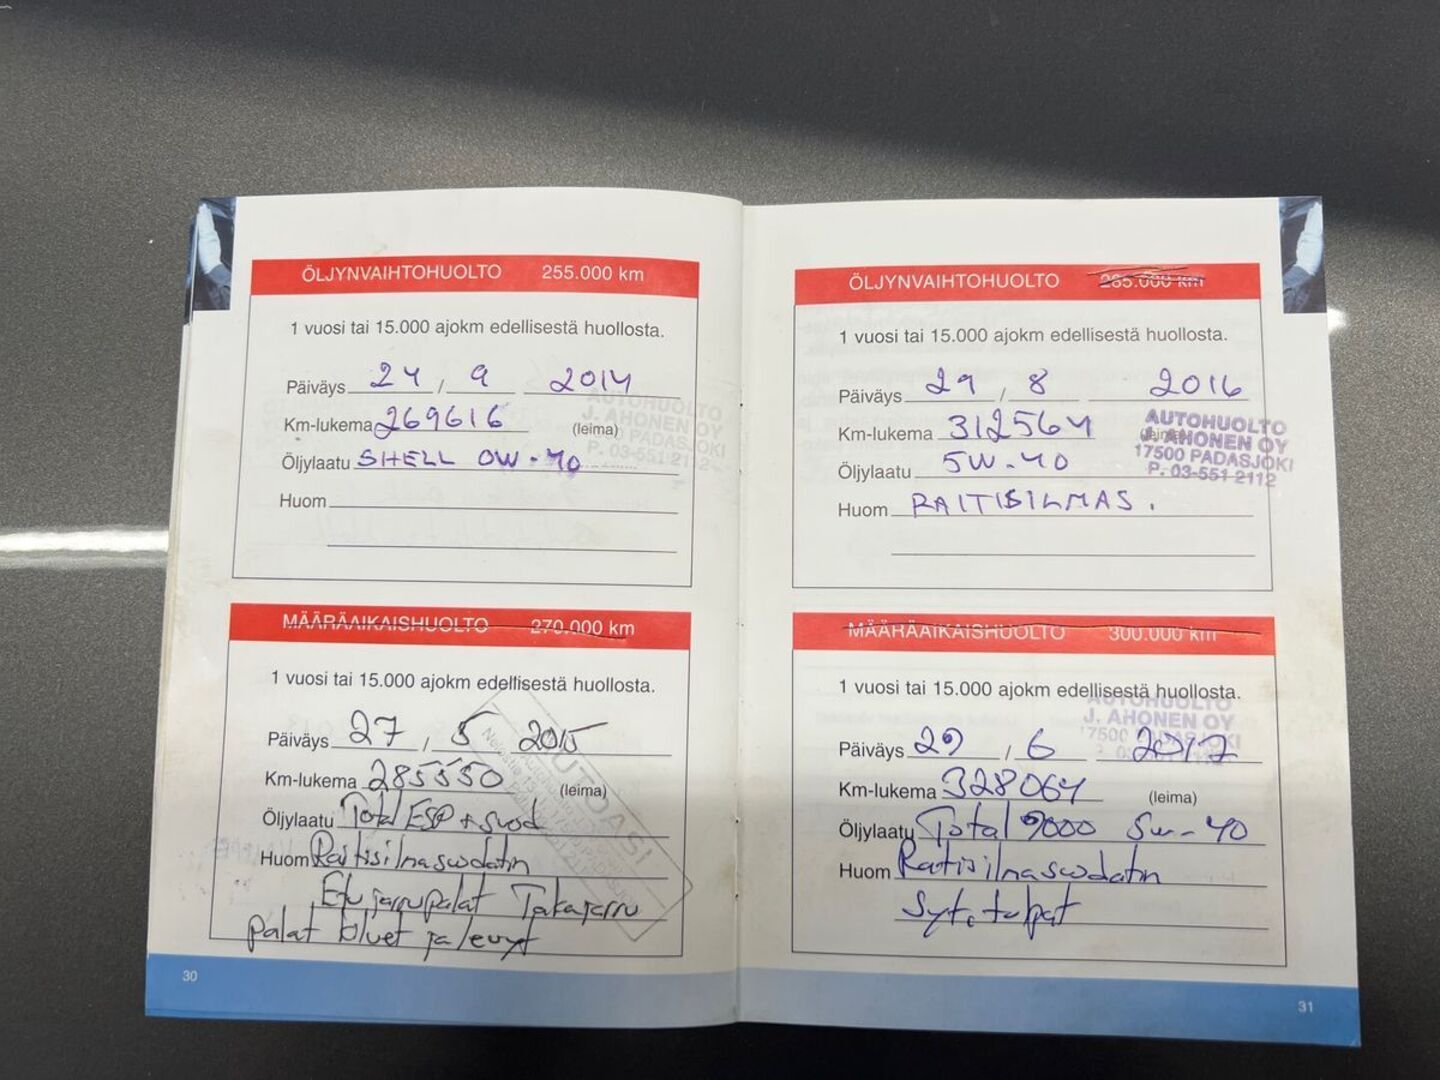 ÖLJYNVAIHTOHUOLTO 255.000 km
1 vuosi tai 15.000 ajokm edellisestä huollosta.
Päiväys 24 / 9 2014
AUTOHUOLTO
J. AHONEN OY
PADASJOKI
P. 03-551 2112
Km-lukema 269616 (leima)
Öljylaatu SHELL 0W-40
Huom
MÄÄRÄAIKAISHUOLTO 270.000 km
1 vuosi tai 15.000 ajokm edellisestä huollosta.
Päiväys 27 / 5 2015
Km-lukema 285550 (leima)
AUTOASI
Öljylaatu Total ESP + suod
Huom Raitisilmasuodatin
Etujarrupalat Takajarru
palat + levyt ja levyt
30
ÖLJYNVAIHTOHUOLTO 285.000 km
1 vuosi tai 15.000 ajokm edellisestä huollosta.
Päiväys 29 / 8 2016
Km-lukema 312564
AUTOHUOLTO
J. AHONEN OY
17500 PADASJOKI
P. 03-551 2112
Öljylaatu 5W-40
Huom RAITISILMAS.
MÄÄRÄAIKAISHUOLTO 300.000 km
1 vuosi tai 15.000 ajokm edellisestä huollosta.
AUTOHUOLTO
J. AHONEN OY
17500 PADASJOKI
Päiväys 29 / 6 2017
Km-lukema 328064 (leima)
Öljylaatu Total 9000 5w-40
Huom Raitisilmasuodatin
Syt.tulpat
31